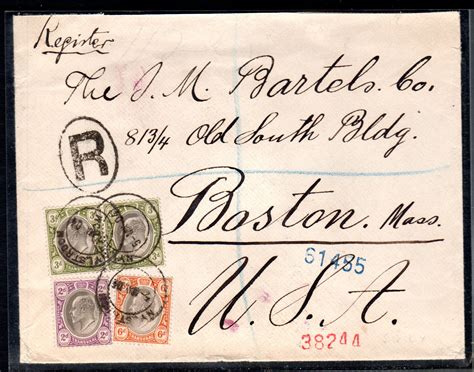 Register
The J. M. Bartels. Co.
813/4 Old South Bldg.
R
Boston. Mass.
61485
U. S. A.
38244
3d 3d
2d 2d 6d 6d